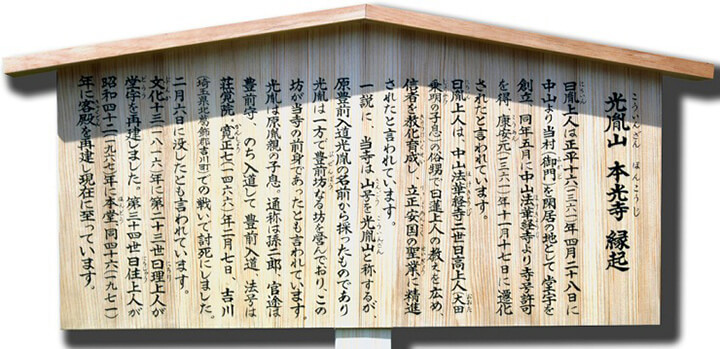 光胤山 本光寺 縁起
こういんざん ほんこうじ
日胤上人は正平十六(一三六一)年四月二十八日に
中山より当村(御門)を閑居の地として堂宇を
創立、同年五月に中山法華経寺より寺号許可
を得、康安元(一三六一)年十一月十七日に遷化
されたと言われています。
日胤上人は、中山法華経寺三世日高上人(大田
乗明の子息)の俗甥で日蓮上人の教えを広め、
信者を教化育成し、立正安国の聖業に精進
されたと言われています。
一説に、当寺は山号を光胤山と称するが、
原豊前入道光胤の名前から採ったものであり
光胤は一方で豊前坊なる坊を営んでおり、この
坊が当寺の前身であったとも言われています。
光胤は原胤親の子息、通称は孫二郎、官途は
豊前守、のち入道して、豊前入道、法号は
荘覚院、寛正七(一四六六)年二月七日、吉川
埼玉県北葛飾郡吉川町での戦いで討死にしました。
二月六日に没したとも言われています。
文化十三(一八一六)年に第二十三世日理上人が
堂宇を再建しました。第三十四世日住上人が
昭和四十二(一九六七)年に本堂、同四十六(一九七一)
年に客殿を再建し現在に至っています。